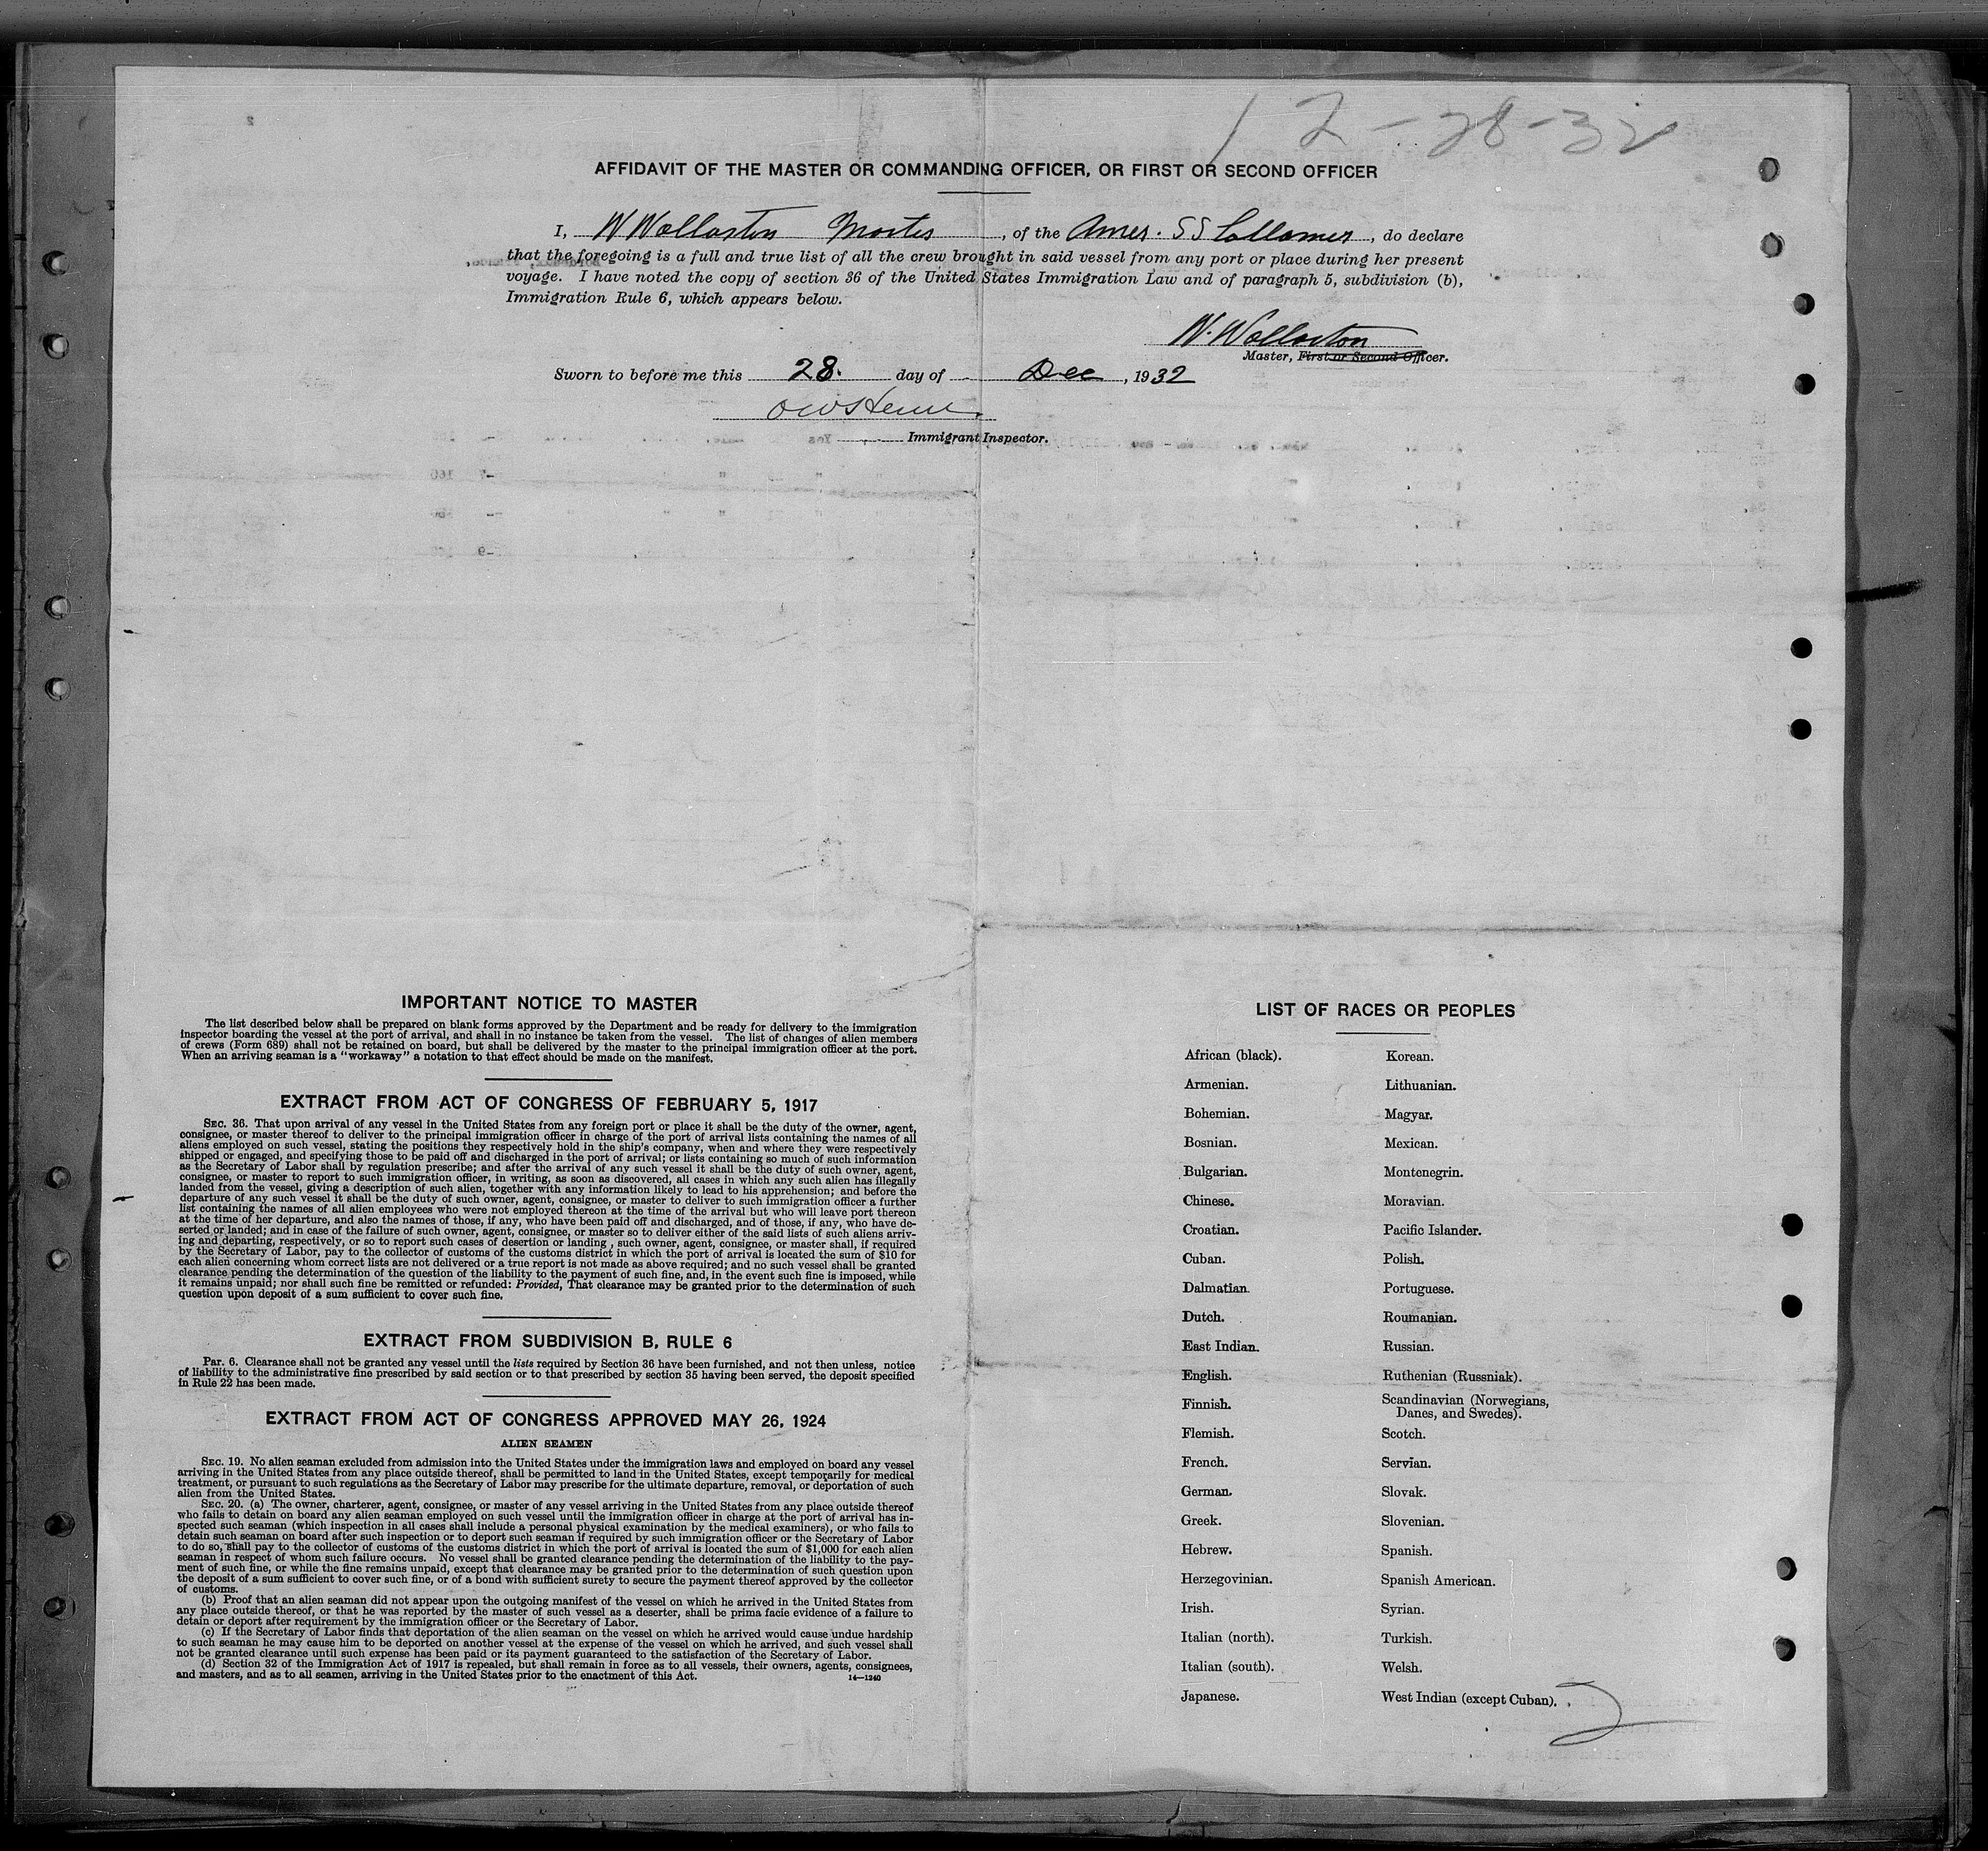 12-28-32
AFFIDAVIT OF THE MASTER OR COMMANDING OFFICER, OR FIRST OR SECOND OFFICER
I, W Wollaston Master, of the Amer. SS Collamer, do declare
that the foregoing is a full and true list of all the crew brought in said vessel from any port or place during her present
voyage. I have noted the copy of section 36 of the United States Immigration Law and of paragraph 5, subdivision (b),
Immigration Rule 6, which appears below.
W. Wollaston
Master, First or Second Officer.
Sworn to before me this 28. day of Dec, 1932
Immigrant Inspector.
IMPORTANT NOTICE TO MASTER
The list described below shall be prepared on blank forms approved by the Department and be ready for delivery to the immigration
inspector boarding the vessel at the port of arrival, and shall in no instance be taken from the vessel. The list of changes of alien members
of crews (Form 689) shall not be retained on board, but shall be delivered by the master to the principal immigration officer at the port.
When an arriving seaman is a "workaway" a notation to that effect should be made on the manifest.
EXTRACT FROM ACT OF CONGRESS OF FEBRUARY 5, 1917
SEC. 36. That upon arrival of any vessel in the United States from any foreign port or place it shall be the duty of the owner, agent,
consignee, or master thereof to deliver to the principal immigration officer in charge of the port of arrival lists containing the names of all
aliens employed on such vessel, stating the positions they respectively hold in the ship's company, when and where they were respectively
shipped or engaged, and specifying those to be paid off and discharged in the port of arrival; or lists containing so much of such information
as the Secretary of Labor shall by regulation prescribe; and after the arrival of any such vessel it shall be the duty of such owner, agent,
consignee, or master to report to such immigration officer, in writing, as soon as discovered, all cases in which any such alien has illegally
landed from the vessel, giving a description of such alien, together with any information likely to lead to his apprehension; and before the
departure of any such vessel it shall be the duty of such owner, agent, consignee, or master to deliver to such immigration officer a further
list containing the names of all alien employees who were not employed thereon at the time of the arrival but who will leave port thereon
at the time of her departure, and also the names of those, if any, who have been paid off and discharged, and of those, if any, who have de-
serted or landed; and in case of the failure of such owner, agent, consignee, or master so to deliver either of the said lists of such aliens arriv-
ing and departing, respectively, or so to report such cases of desertion or landing, such owner, agent, consignee, or master shall, if required
by the Secretary of Labor, pay to the collector of customs of the customs district in which the port of arrival is located the sum of $10 for
each alien concerning whom correct lists are not delivered or a true report is not made as above required; and no such vessel shall be granted
clearance pending the determination of the question of the liability to the payment of such fine, and, in the event such fine is imposed, while
it remains unpaid; nor shall such fine be remitted or refunded: Provided, That clearance may be granted prior to the determination of such
question upon deposit of a sum sufficient to cover such fine.
EXTRACT FROM SUBDIVISION B, RULE 6
Par. 6. Clearance shall not be granted any vessel until the lists required by Section 36 have been furnished, and not then unless, notice
of liability to the administrative fine prescribed by said section or to that prescribed by section 35 having been served, the deposit specified
in Rule 22 has been made.
EXTRACT FROM ACT OF CONGRESS APPROVED MAY 26, 1924
ALIEN SEAMEN
SEC. 19. No alien seaman excluded from admission into the United States under the immigration laws and employed on board any vessel
arriving in the United States from any place outside thereof, shall be permitted to land in the United States, except temporarily for medical
treatment, or pursuant to such regulations as the Secretary of Labor may prescribe for the ultimate departure, removal, or deportation of such
alien from the United States.
SEC. 20. (a) The owner, charterer, agent, consignee, or master of any vessel arriving in the United States from any place outside thereof
who fails to detain on board any alien seaman employed on such vessel until the immigration officer in charge at the port of arrival has in-
spected such seaman (which inspection in all cases shall include a personal physical examination by the medical examiners), or who fails to
detain such seaman on board after such inspection or to deport such seaman if required by such immigration officer or the Secretary of Labor
to do so, shall pay to the collector of customs of the customs district in which the port of arrival is located the sum of $1,000 for each alien
seaman in respect of whom such failure occurs. No vessel shall be granted clearance pending the determination of the liability to the pay-
ment of such fine, or while the fine remains unpaid, except that clearance may be granted prior to the determination of such question upon
the deposit of a sum sufficient to cover such fine, or of a bond with sufficient surety to secure the payment thereof approved by the collector
of customs.
(b) Proof that an alien seaman did not appear upon the outgoing manifest of the vessel on which he arrived in the United States from
any place outside thereof, or that he was reported by the master of such vessel as a deserter, shall be prima facie evidence of a failure to
detain or deport after requirement by the immigration officer or the Secretary of Labor.
(c) If the Secretary of Labor finds that deportation of the alien seaman on the vessel on which he arrived would cause undue hardship
to such seaman he may cause him to be deported on another vessel at the expense of the vessel on which he arrived, and such vessel shall
not be granted clearance until such expense has been paid or its payment guaranteed to the satisfaction of the Secretary of Labor.
(d) Section 32 of the Immigration Act of 1917 is repealed, but shall remain in force as to all vessels, their owners, agents, consignees,
and masters, and as to all seamen, arriving in the United States prior to the enactment of this Act.
14—1240
LIST OF RACES OR PEOPLES
African (black).
Armenian.
Bohemian.
Bosnian.
Bulgarian.
Chinese.
Croatian.
Cuban.
Dalmatian.
Dutch.
East Indian.
English.
Finnish.
Flemish.
French.
German.
Greek.
Hebrew.
Herzegovinian.
Irish.
Italian (north).
Italian (south).
Japanese.
Korean.
Lithuanian.
Magyar.
Mexican.
Montenegrin.
Moravian.
Pacific Islander.
Polish.
Portuguese.
Roumanian.
Russian.
Ruthenian (Russniak).
Scandinavian (Norwegians,
Danes, and Swedes).
Scotch.
Servian.
Slovak.
Slovenian.
Spanish.
Spanish American.
Syrian.
Turkish.
Welsh.
West Indian (except Cuban).